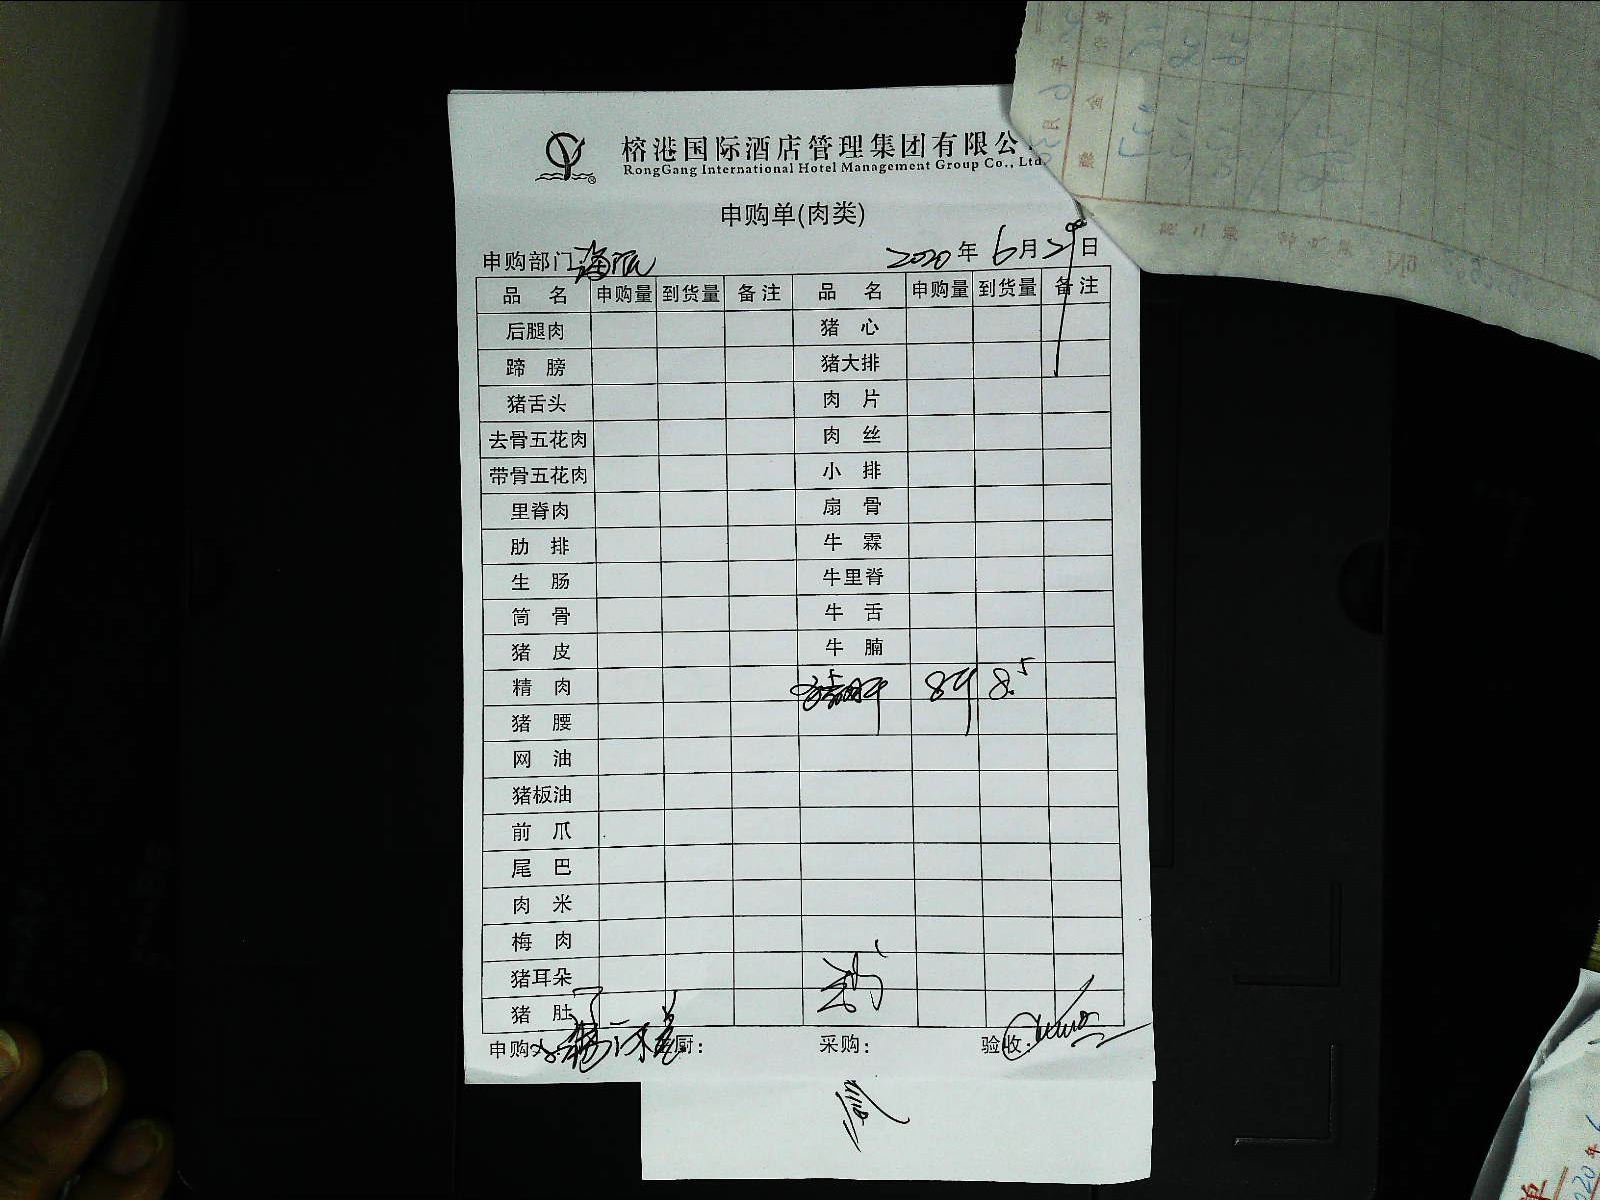 榕港国际酒店管理集团有限公
RongGang International Hotel Management Group Co., Ltd.
申购单(肉类)
申购部门: 2020年6月29日
品名 申购量 到货量 备注 品名 申购量 到货量 备注
后腿肉 猪心
蹄膀 猪大排
猪舌头 肉片
去骨五花肉 肉丝
带骨五花肉 小排
里脊肉 扇骨
肋排 牛霖
生肠 牛里脊
筒骨 牛舌
猪皮 牛腩
精肉 8斤 8.5
猪腰
网油
猪板油
前爪
尾巴
肉米
梅肉
猪耳朵
猪肚
申购人: 厨: 采购: 验收: